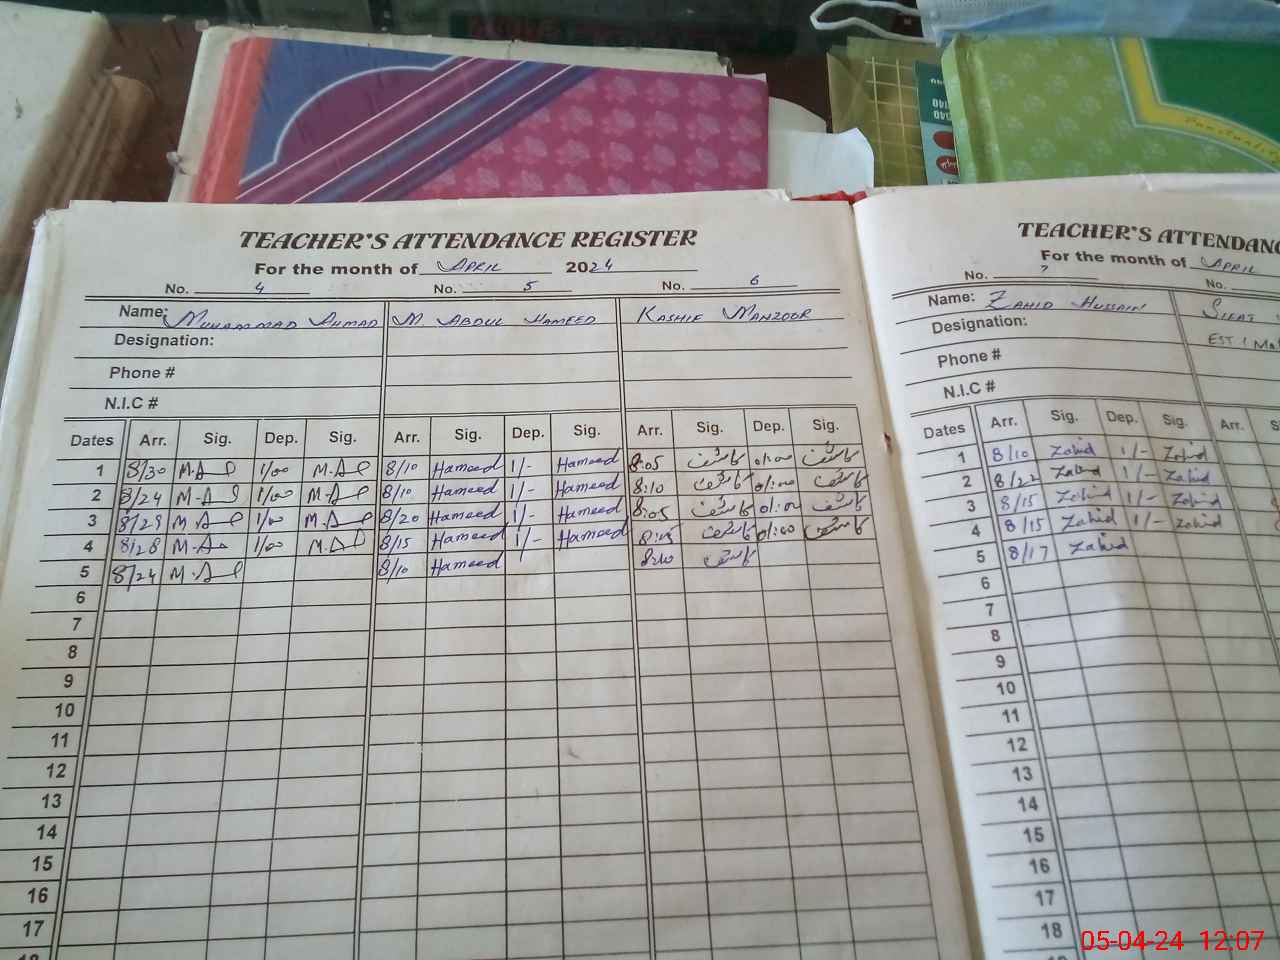 Punctuality
TEACHER'S ATTENDANCE REGISTER
For the month of April 2024
No. 4 No. 5 No. 6
Name: Muhammad Ahmad M. Abdul Hameed Kashif Manzoor
Designation:
Phone #
N.I.C #
Dates Arr. Sig. Dep. Sig. Arr. Sig. Dep. Sig. Arr. Sig. Dep. Sig.
1 8/30 1/00 8/10 Hameed 1/- Hameed 8:05 کاشف 01:00 کاشف
2 8/24 1/00 8/10 Hameed 1/- Hameed 8:10 کاشف 01:00 کاشف
3 8/29 1/00 8/20 Hameed 1/- Hameed 8:05 کاشف 01:00 کاشف
4 8/28 1/00 8/15 Hameed 1/- Hameed 8:15 کاشف 01:00 کاشف
5 8/24 8/10 Hameed 8:10 کاشف
6
7
8
9
10
11
12
13
14
15
16
17
18
TEACHER'S ATTENDANC
For the month of April
No. 7 No.
Name: Zahid Hussain
Designation: EST (Ma
Phone #
N.I.C #
Dates Arr. Sig. Dep. Sig. Arr. S
1 8/10 Zahid 1/- Zahid
2 8/22 Zahid 1/- Zahid
3 8/15 Zahid 1/- Zahid
4 8/15 Zahid 1/- Zahid
5 8/17 Zahid
6
7
8
9
10
11
12
13
14
15
16
17
18
05-04-24 12:07